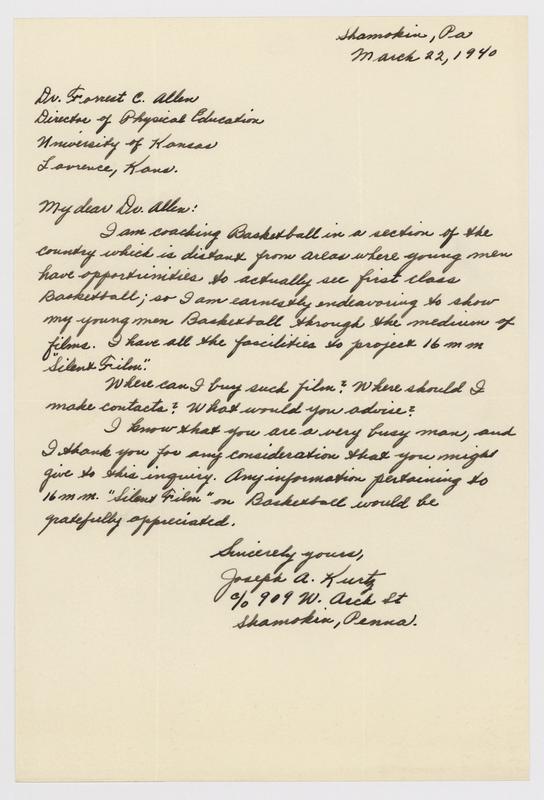 Shamokin, Pa
March 22, 1940
Dr. Forrest C. Allen
Director of Physical Education
University of Kansas
Lawrence, Kans.
My dear Dr. Allen:
I am coaching Basketball in a section of the
country which is distant from areas where young men
have opportrinities to actually see first class
Basketball; so I am earnestly endeavoring to show
my young men Basketball through the medium of
films. I have all the facilities to project 16 m m
"Silent Film".
Where can I buy such film? Where should I
make contacts? What would you advise?
I know that you are a very busy man, and
I thank you for any consideration that you might
give to this inquiry. Any information pertaining to
16 m m. "Silent Film" on Basketball would be
gratefully appreciated.
Sincerely yours,
Joseph A. Kurtz
c/o 909 W. Arch St
Shamokin, Penna.